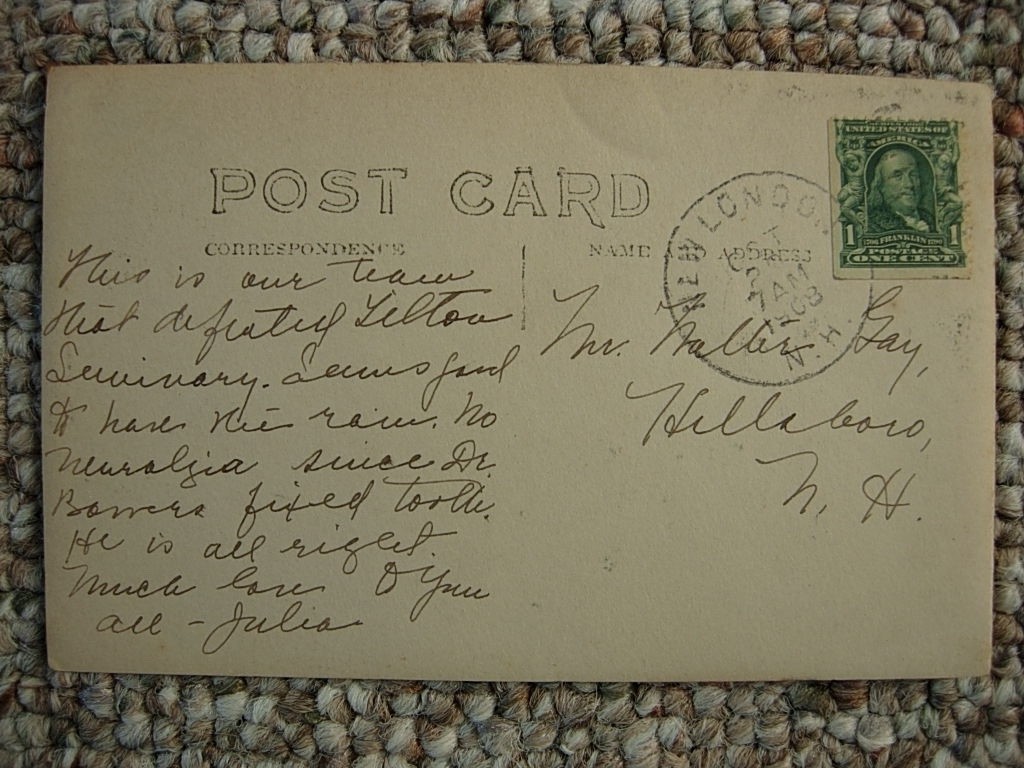 POST CARD
CORRESPONDENCE
NAME AND ADDRESS
UNITED STATES OF
AMERICA
1706 FRANKLIN 1790
1 POSTAGE 1
ONE CENT
NEW LONDON
OCT
7 AM
1908
N.H.
This is our team
that defeated Tilton
Seminary. Seems good
to have the rain. No
neuralgia since Dr.
Bowers fixed tooth.
He is all right.
Much love to you
all - Julia
Mr. Walter Gay,
Hillsboro,
N. H.